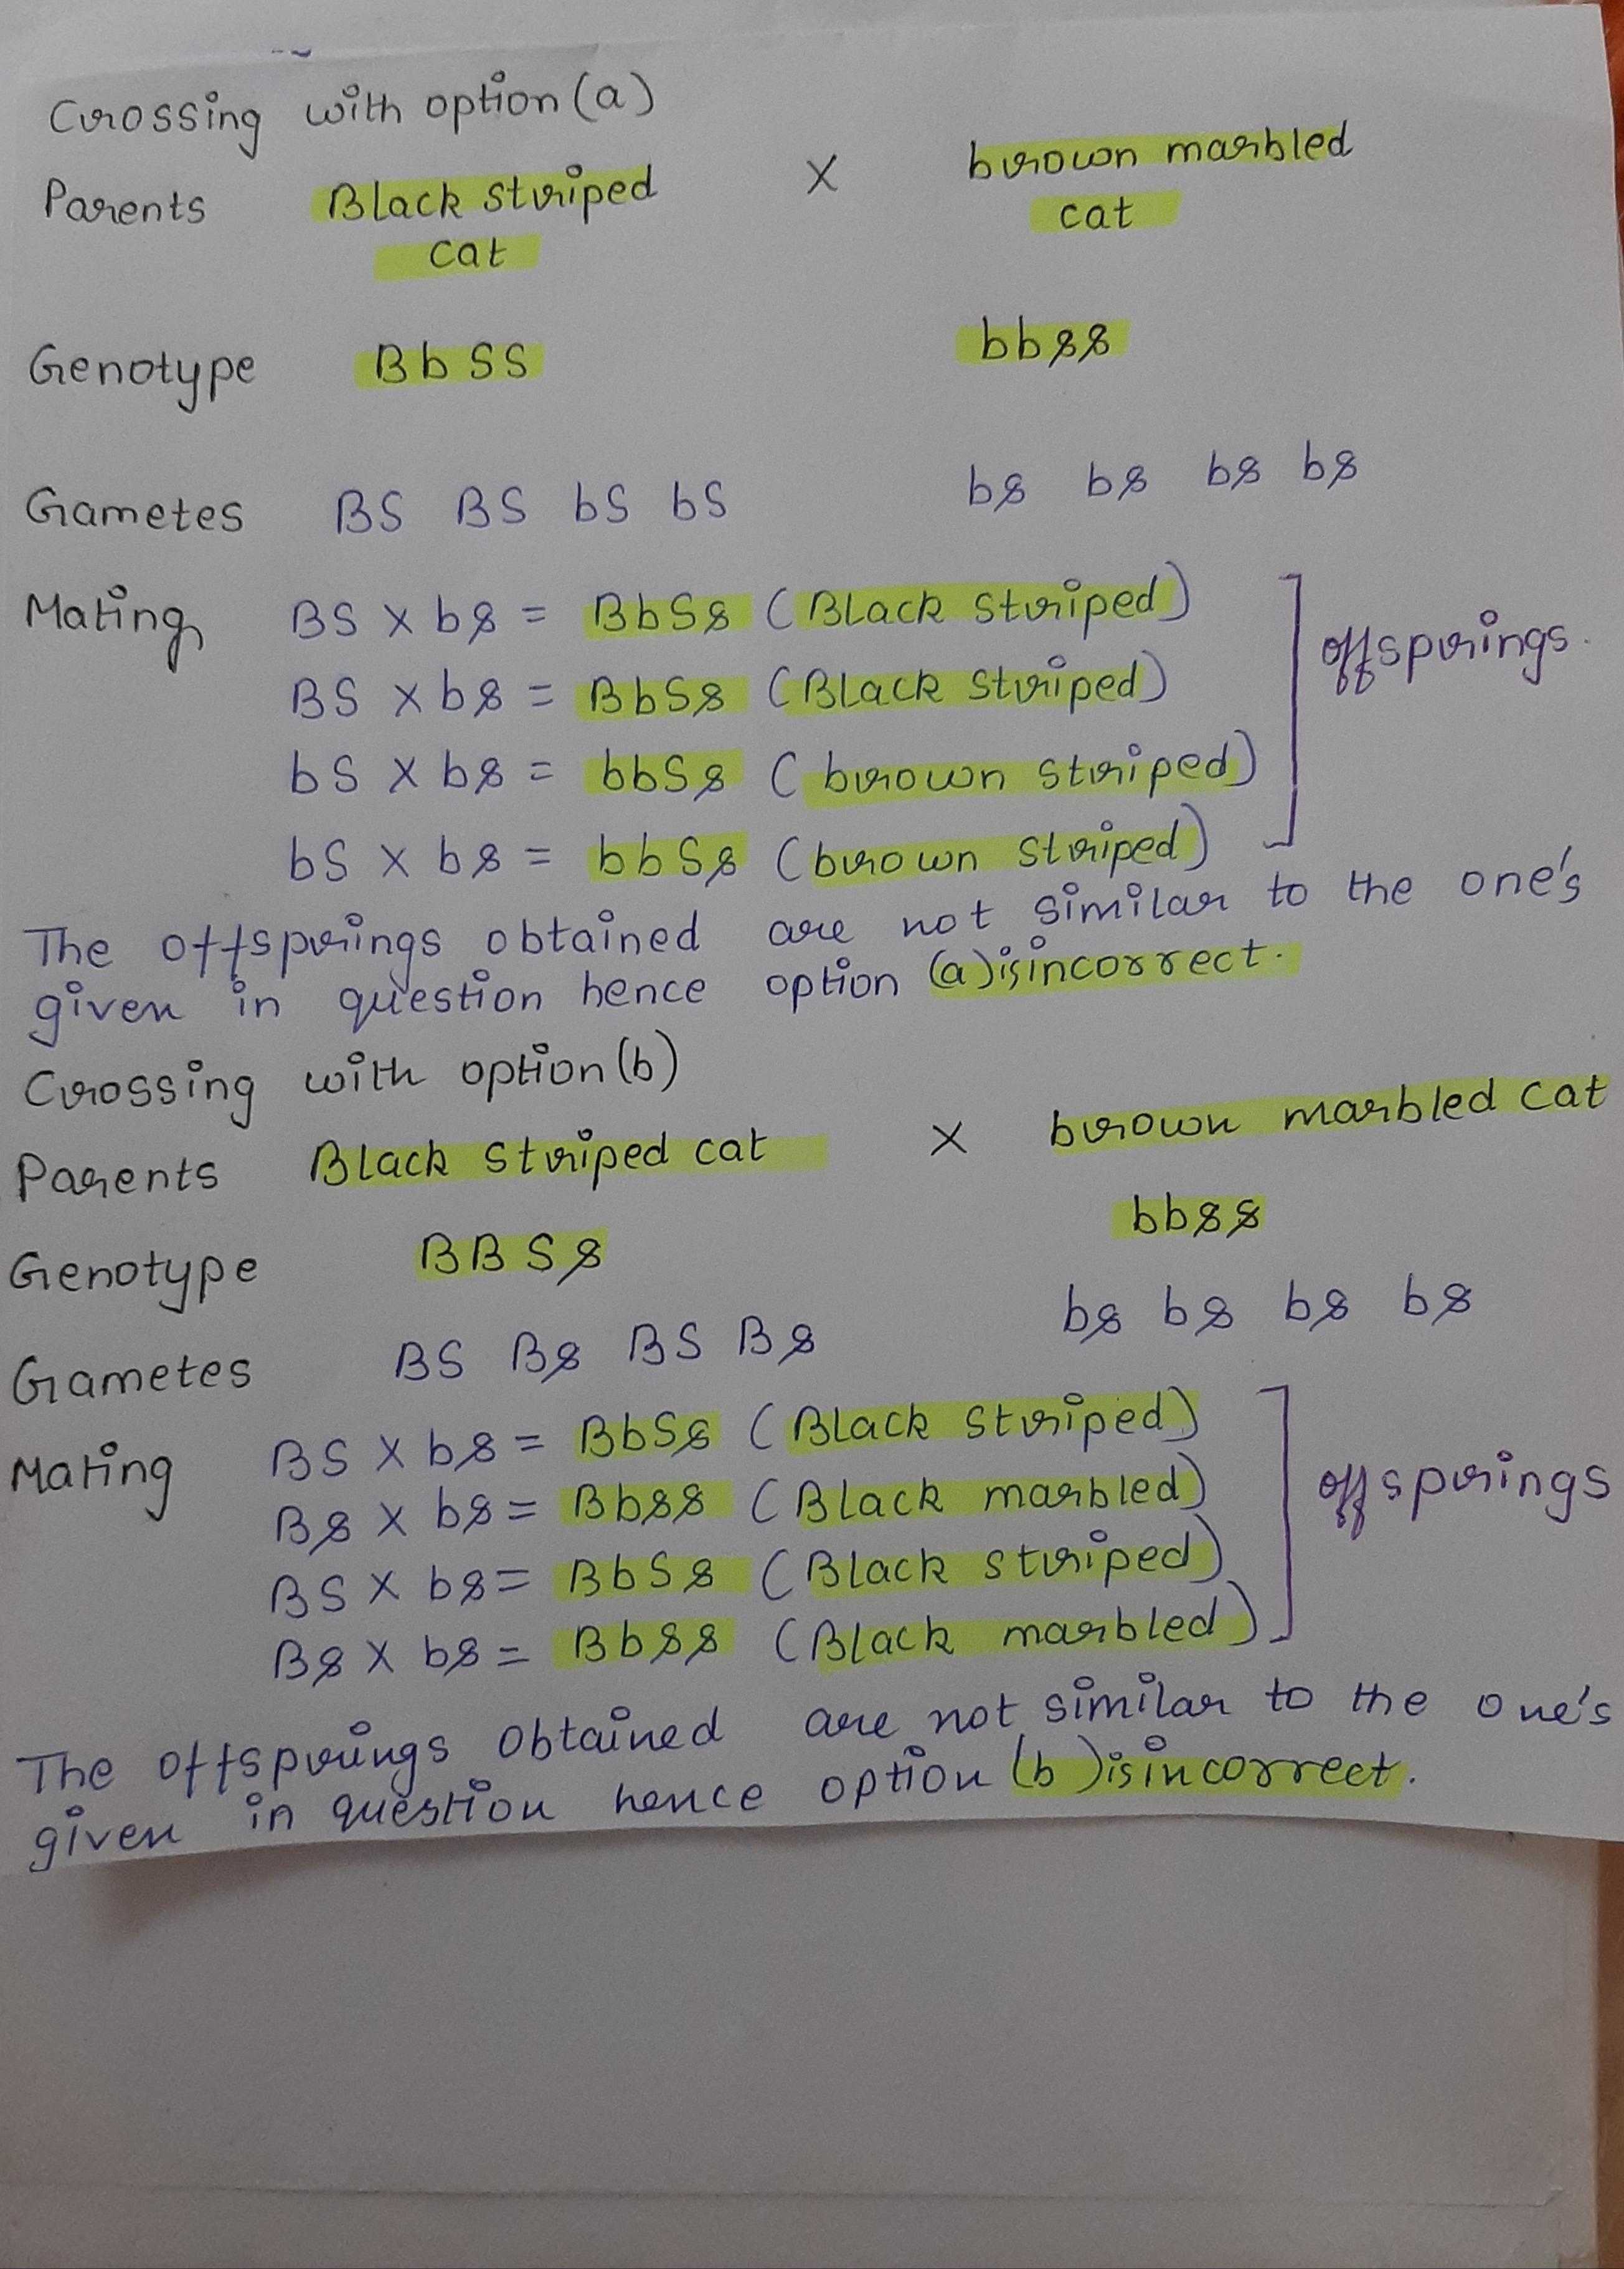 Crossing with option (a)
Parents Black Striped cat X brown marbled cat
Genotype BbSS bbss
Gametes BS BS bS bS bs bs bs bs
Mating BS X bs = BbSs (Black Striped)
BS X bs = BbSs (Black Striped)
bS X bs = bbSs (brown striped)
bS X bs = bbSs (brown striped)
offsprings.
The offsprings obtained are not similar to the one's
given in question hence option (a) is incorrect.
Crossing with option (b)
Parents Black Striped cat X brown marbled cat
Genotype BBSs bbss
Gametes BS Bs BS Bs bs bs bs bs
Mating BS X bs = BbSs (Black Striped)
Bs X bs = Bbss (Black marbled)
BS X bs = BbSs (Black striped)
Bs X bs = Bbss (Black marbled)
offsprings
The offsprings obtained are not similar to the one's
given in question hence option (b) is incorrect.